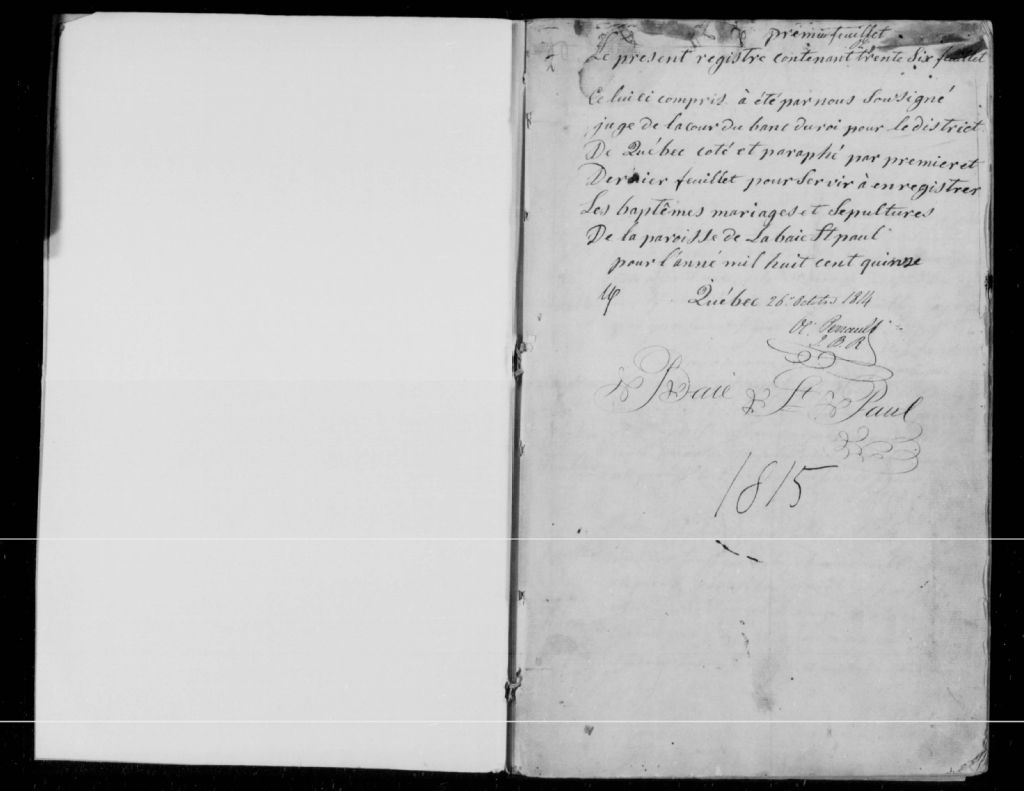 premier feuillet
Le present registre contenant trente Six feuillet
Ce lui ci compris à été par nous Soussigné
juge de la cour du banc du roi pour le district
De Québec coté et paraphé par premier et
Dernier feuillet pour Servir à enregistrer
Les baptêmes mariages et Sepultures
De la paroisse de La baie St paul
pour l'anné mil huit cent quinze
Québec 26 Octobre 1814
Perrault
J. B. R
Baie St Paul
1815